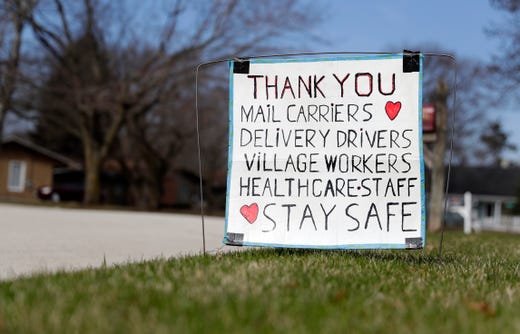 THANK YOU
MAIL CARRIERS
DELIVERY DRIVERS
VILLAGE WORKERS
HEALTHCARE•STAFF
STAY SAFE